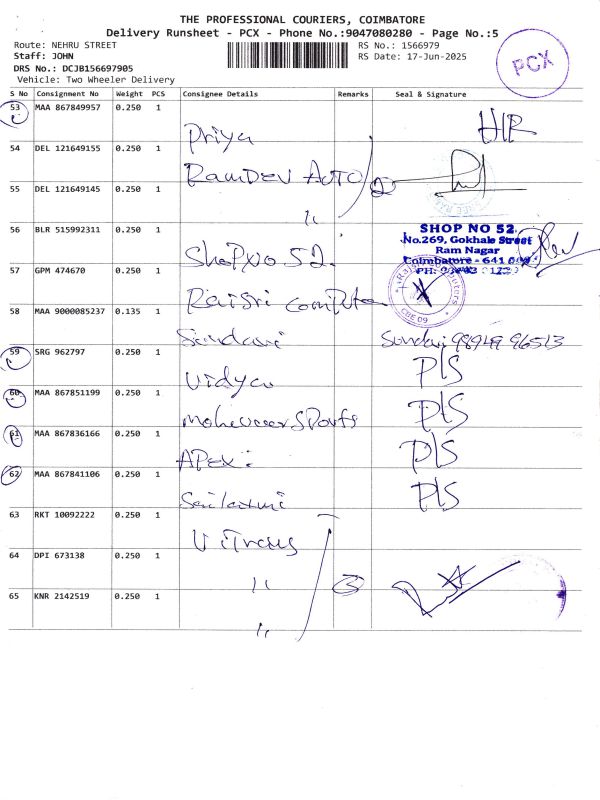 THE PROFESSIONAL COURIERS, COIMBATORE
Delivery Runsheet - PCX - Phone No.:9047080280 - Page No.:5
Route: NEHRU STREET
Staff: JOHN
DRS No.: DCJB156697905
Vehicle: Two Wheeler Delivery
RS No.: 1566979
RS Date: 17-Jun-2025
PCX
S No Consignment No Weight PCS Consignee Details Remarks Seal & Signature
53 MAA 867849957 0.250 1 Priya
54 DEL 121649155 0.250 1 RamDEV AUTO 2
55 DEL 121649145 0.250 1 "
56 BLR 515992311 0.250 1 ShoP No 52.
SHOP NO 52.
No.269, Gokhale Street
Ram Nagar
Coimbatore - 641 009
57 GPM 474670 0.250 1 Raisri Computer
CBE 09
58 MAA 9000085237 0.135 1 Sundari Sundari 98949 96513
59 SRG 962797 0.250 1 Vidya P/S
60 MAA 867851199 0.250 1 SPorts P/S
61 MAA 867836166 0.250 1 APEX : P/S
62 MAA 867841106 0.250 1 Sailaxmi P/S
63 RKT 10092222 0.250 1 V iTrans
64 DPI 673138 0.250 1 " 3
65 KNR 2142519 0.250 1 "